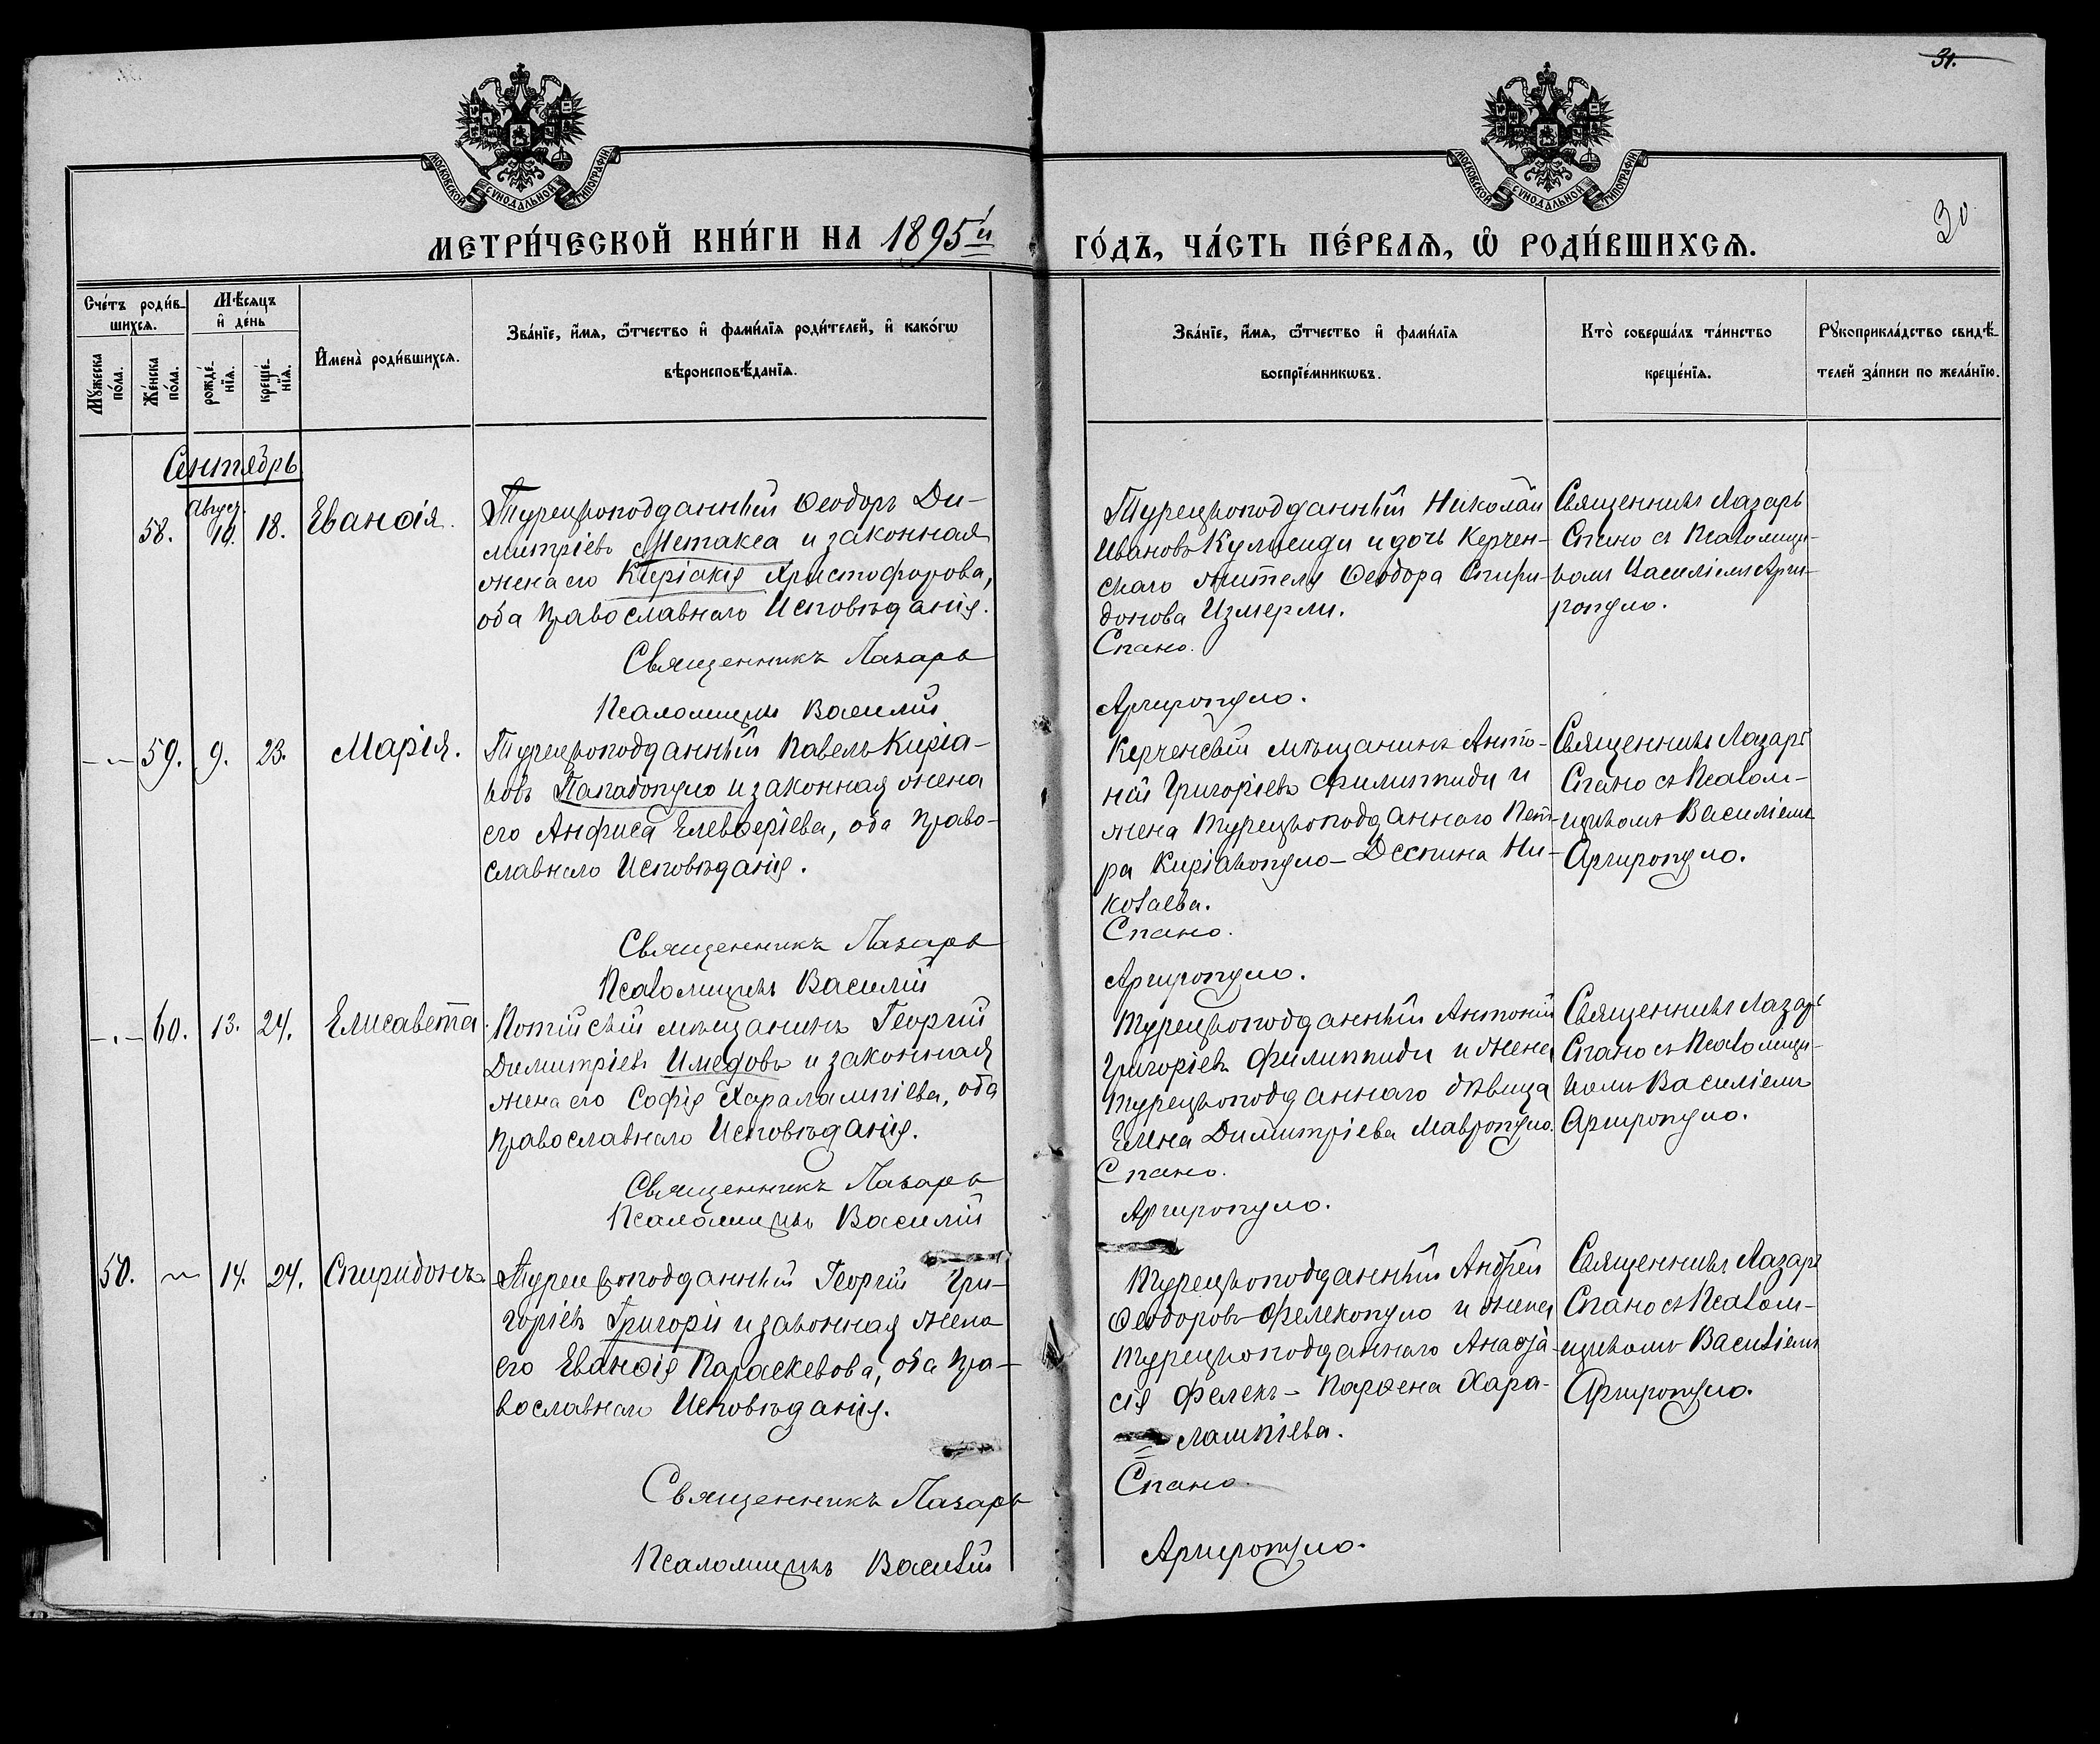 31.
30
МОСКОВСКОЙ СѴНОДАЛЬНОЙ ТИПОГРАФІИ
МОСКОВСКОЙ СѴНОДАЛЬНОЙ ТИПОГРАФІИ
МЕТРИ́ЧЕСКОЙ КНИ́ГИ НА 1895й
ГО́ДЪ, ЧА́СТЬ ПЕ́РВАѦ, Ѡ҆ РОДИ́ВШИХСѦ.
Сче́тъ роди́в-
шихсѧ.
Мѣ́сѧцъ
и҆ де́нь
Мꙋ́жеска по́ла.
Же́нска по́ла.
рожде́-
нїѧ.
креще́-
нїѧ.
И҆мена̀ роди́вшихсѧ.
Зва́нїе, и҆́мѧ, ѻ҆́тчество и҆ фами́лїѧ роди́телей, и҆ како́гѡ
вѣроисповѣ́данїѧ.
Зва́нїе, и҆́мѧ, ѻ҆́тчество и҆ фами́лїѧ
воспрїе́мникѡвъ.
Кто̀ соверша́лъ та́инство
креще́нїѧ.
Рꙋкоприкла́дство свидѣ́-
телей за́писи по жела́нїю.
Сентябрь
58.
Авгус.
19.
18.
Еванѳія.
Турецкоподданный Ѳеодоръ Ди-
митріевъ Метакса и законная
жена его Киріакія Христофорова,
оба Православнаго Исповѣданія.
Священникъ Лазарь
Псаломщикъ Василій
Турецкоподданный Николай
Ивановъ и дочь Керчен-
скаго жителя Ѳеодора Спири-
донова Измерли.
Спано.
Аргиропуло.
Священникъ Лазарь
Спано съ Псаломщи-
комъ Василіемъ Арги-
ропуло.
-"- 59. 9. 23. Марія.
Турецкоподданный Павелъ Киріа-
ковъ Пападопуло и законная жена
его Анфиса Елевѳеріева, оба Право-
славнаго Исповѣданія.
Священникъ Лазарь
Псаломщикъ Василій
Керченскій мѣщанинъ Анто-
ній Григоріевъ Филиппиди и
жена Турецкоподданнаго Пет-
ра Киріакопуло - Деспина Ни-
колаева.
Спано.
Аргиропуло.
Священникъ Лазарь
Спано съ Псалом-
щикомъ Василіемъ
Аргиропуло.
-"- 60. 13. 24. Елисавета.
Потійскій мѣщанинъ Георгій
Димитріевъ Имедовъ и законная
жена его Софія Харалампіева, оба
Православнаго Исповѣданія.
Священникъ Лазарь
Псаломщикъ Василій
Турецкоподданный Антоній
Григоріевъ Филиппиди и жена
Турецкоподданнаго дѣвица
Елена Димитріева Мавропуло.
Спано.
Аргиропуло.
Священникъ Лазарь
Спано съ Псаломщи-
комъ Василіемъ
Аргиропуло.
50. " 14. 24. Спиридонъ.
Турецкоподданный Георгій Гри-
горіевъ Григорій и законная жена
его Еванѳія Параскевова, оба Пра-
вославнаго Исповѣданія.
Священникъ Лазарь
Псаломщикъ Василій
Турецкоподданный Андрей
Ѳеодоровъ Фелекопуло и жена
Турецкоподданнаго Анаста-
сія Фелекъ - Парѳена Хара-
лампіева.
Спано.
Аргиропуло.
Священникъ Лазарь
Спано съ Псалом-
щикомъ Василіемъ
Аргиропуло.